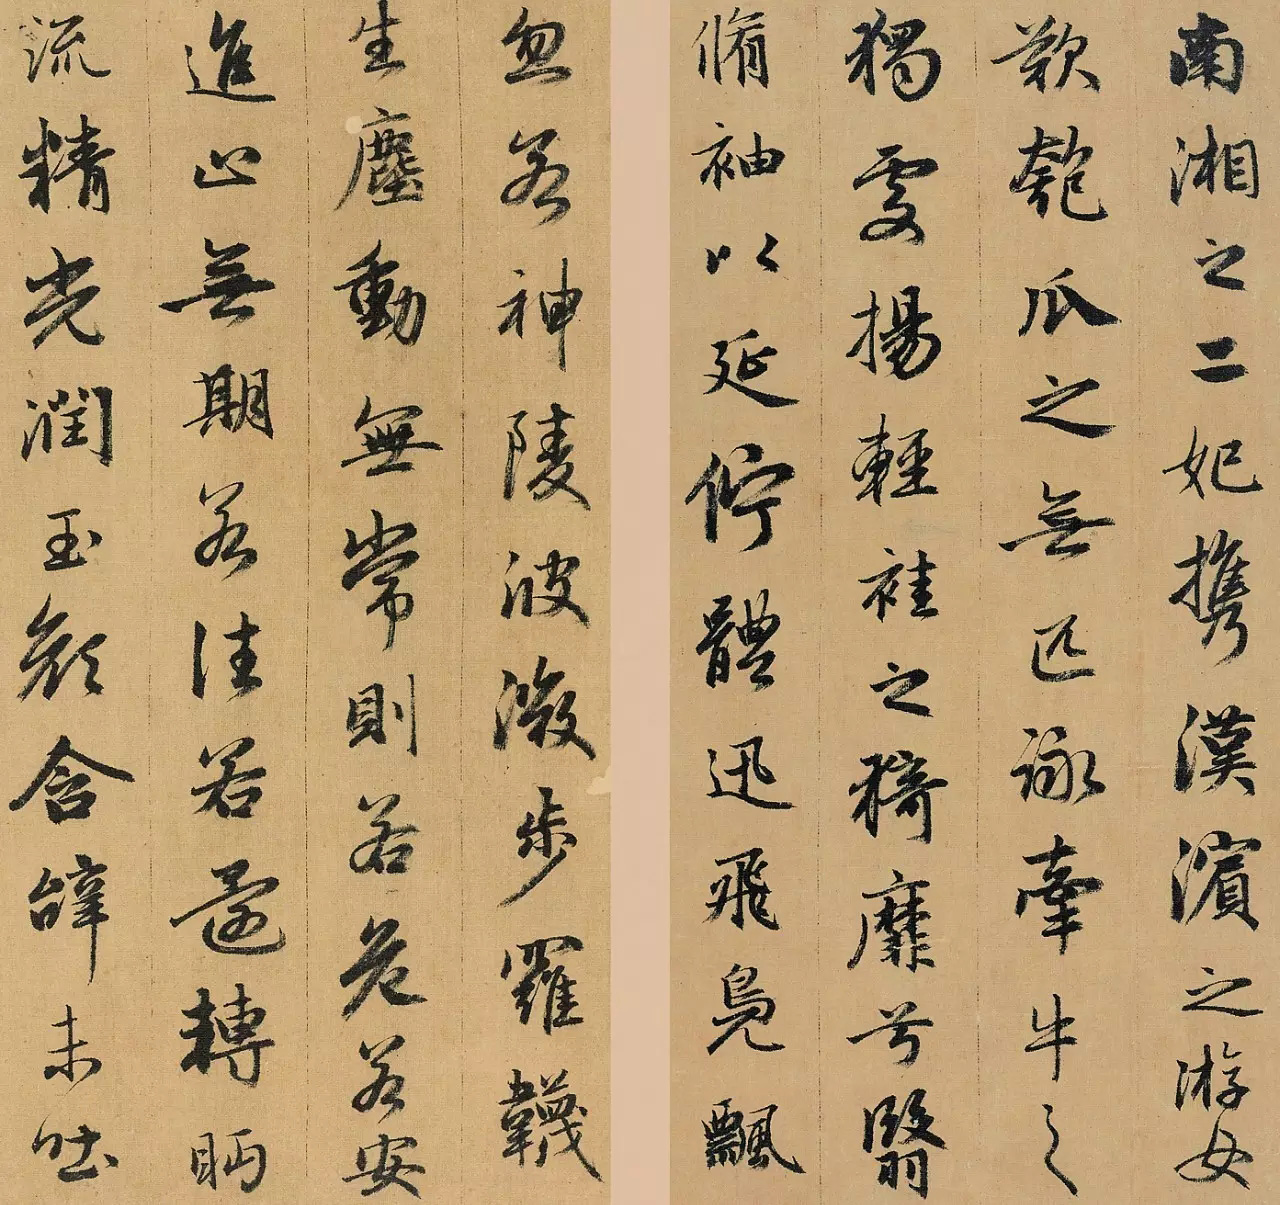 南湘之二妃携漢濱之游女
歎匏瓜之無匹詠牽牛之
獨處揚輕袿之猗靡兮翳
脩袖以延佇體迅飛鳧飄
忽若神陵波微步羅韈
生塵動無常則若危若安
進止無期若往若還轉眄
流精光潤玉顏含辭未吐